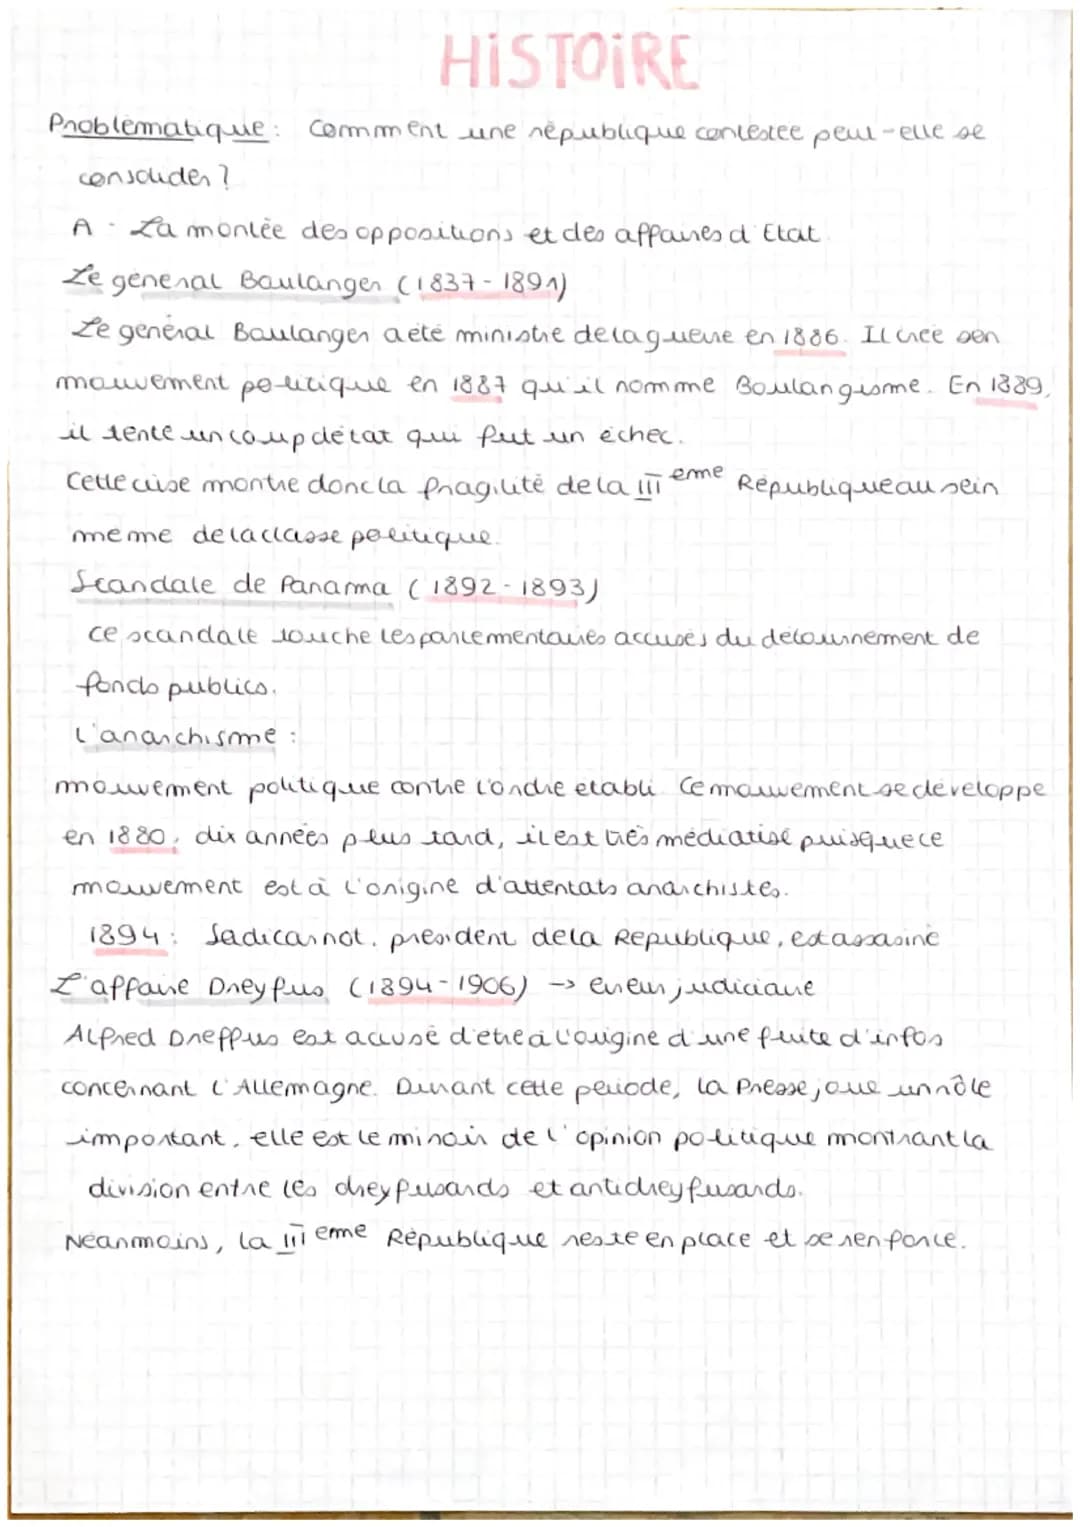 HiSTOiRE
Problématique : Comment une république contestée peut-elle se
consolider ?
A - La montée des oppositions et des affaires d'Etat.
Le général Boulanger (1837-1891)
Le général Boulanger a été ministre de la guerre en 1886. Il crée son
mouvement politique en 1887 qu'il nomme Boulangisme. En 1889,
il tente un coup d'état qui fut un échec.
Cette crise montre donc la fragilité de la IIIeme République au sein
meme de la classe politique.
Scandale de Panama (1892-1893)
ce scandale touche les parlementaires accusés du détournement de
fonds publics.
L'anarchisme :
mouvement politique contre l'ordre etabli. Ce mouvement se développe
en 1880, dix années plus tard, il est très médiatisé puisque ce
mouvement est à l'origine d'attentats anarchistes.
1894 : Sadicarnot, president de la Republique, est assasiné
L'affaire Dreyfus (1894-1906) → erreur judiciaire
Alfred Dreffus est accusé d'etre à l'origine d'une fuite d'infos
concernant l'Allemagne. Durant cette période, la Presse joue un rôle
important, elle est le miroir de l'opinion politique montrant la
division entre les dreyfusards et antidreyfusards.
Néanmoins, la IIIeme République reste en place et se renforce.